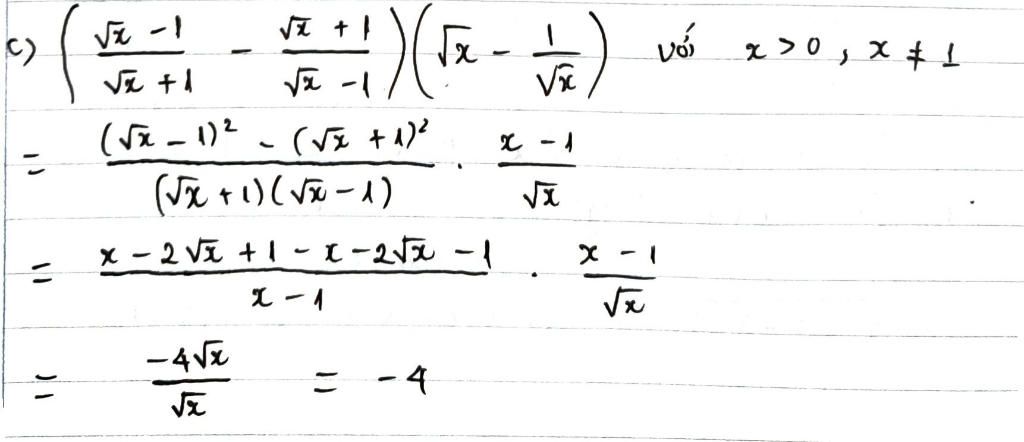 c) ( (√x - 1)/(√x + 1) - (√x + 1)/(√x - 1) ) ( √x - 1/√x ) với x > 0 , x ≠ 1
= ((√x - 1)² - (√x + 1)²)/((√x + 1)(√x - 1)) . (x - 1)/√x
= (x - 2√x + 1 - x - 2√x - 1)/(x - 1) . (x - 1)/√x
= (-4√x)/√x = -4